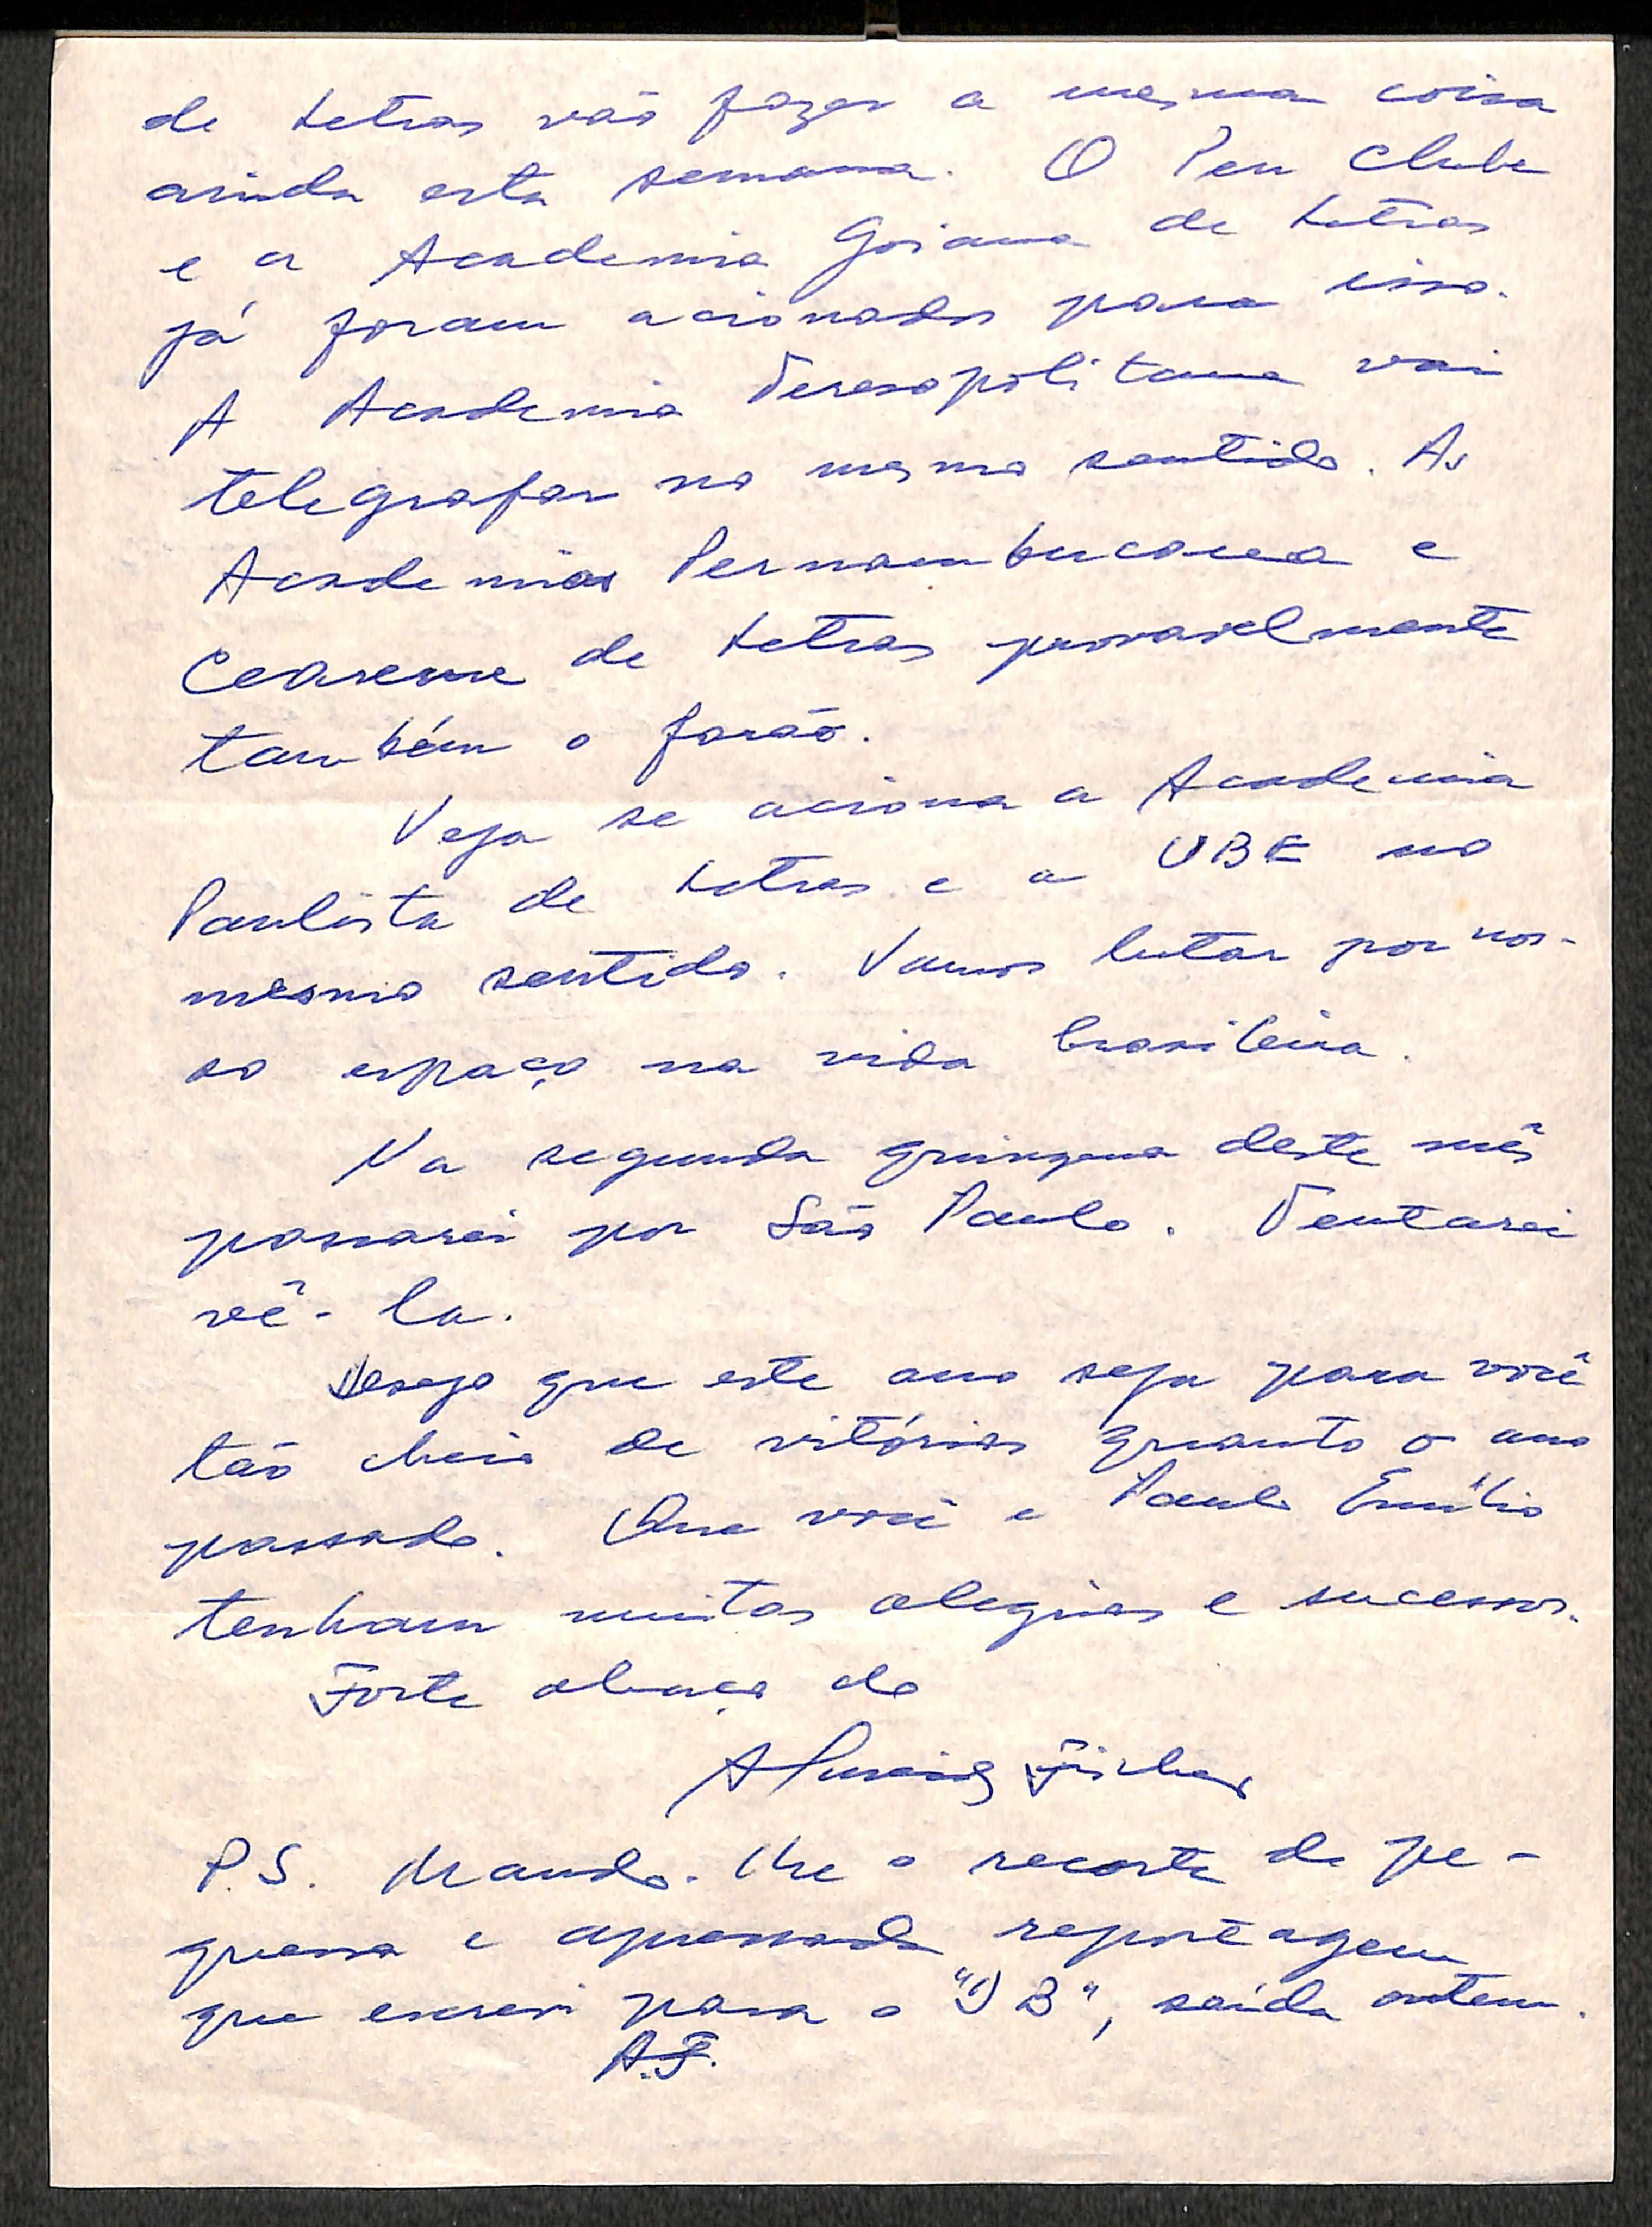 de Letras vão fazer a mesma coisa
ainda esta semana. O Pen Clube
e a Academia Goiana de Letras
já foram acionados para isso.
A Academia Teresopolitana vai
telegrafar no mesmo sentido. As
Academias Pernambucana e
Cearense de Letras provavelmente
também o farão.
Veja se aciona a Academia
Paulista de Letras e a UBE no
mesmo sentido. Vamos lutar por nos-
so espaço na vida brasileira.
Na segunda quinzena deste mês
passarei por São Paulo. Tentarei
vê-la.
Desejo que este ano seja para você
tão cheio de vitórias quanto o ano
passado. Que você e Paulo Emílio
tenham muitas alegrias e sucessos.
Forte abraço do
Almeida Fischer
P.S. Mando-lhe o recorte de pe-
quena e apressada reportagem
que escrevi para o "JB", saída ontem.
A.F.